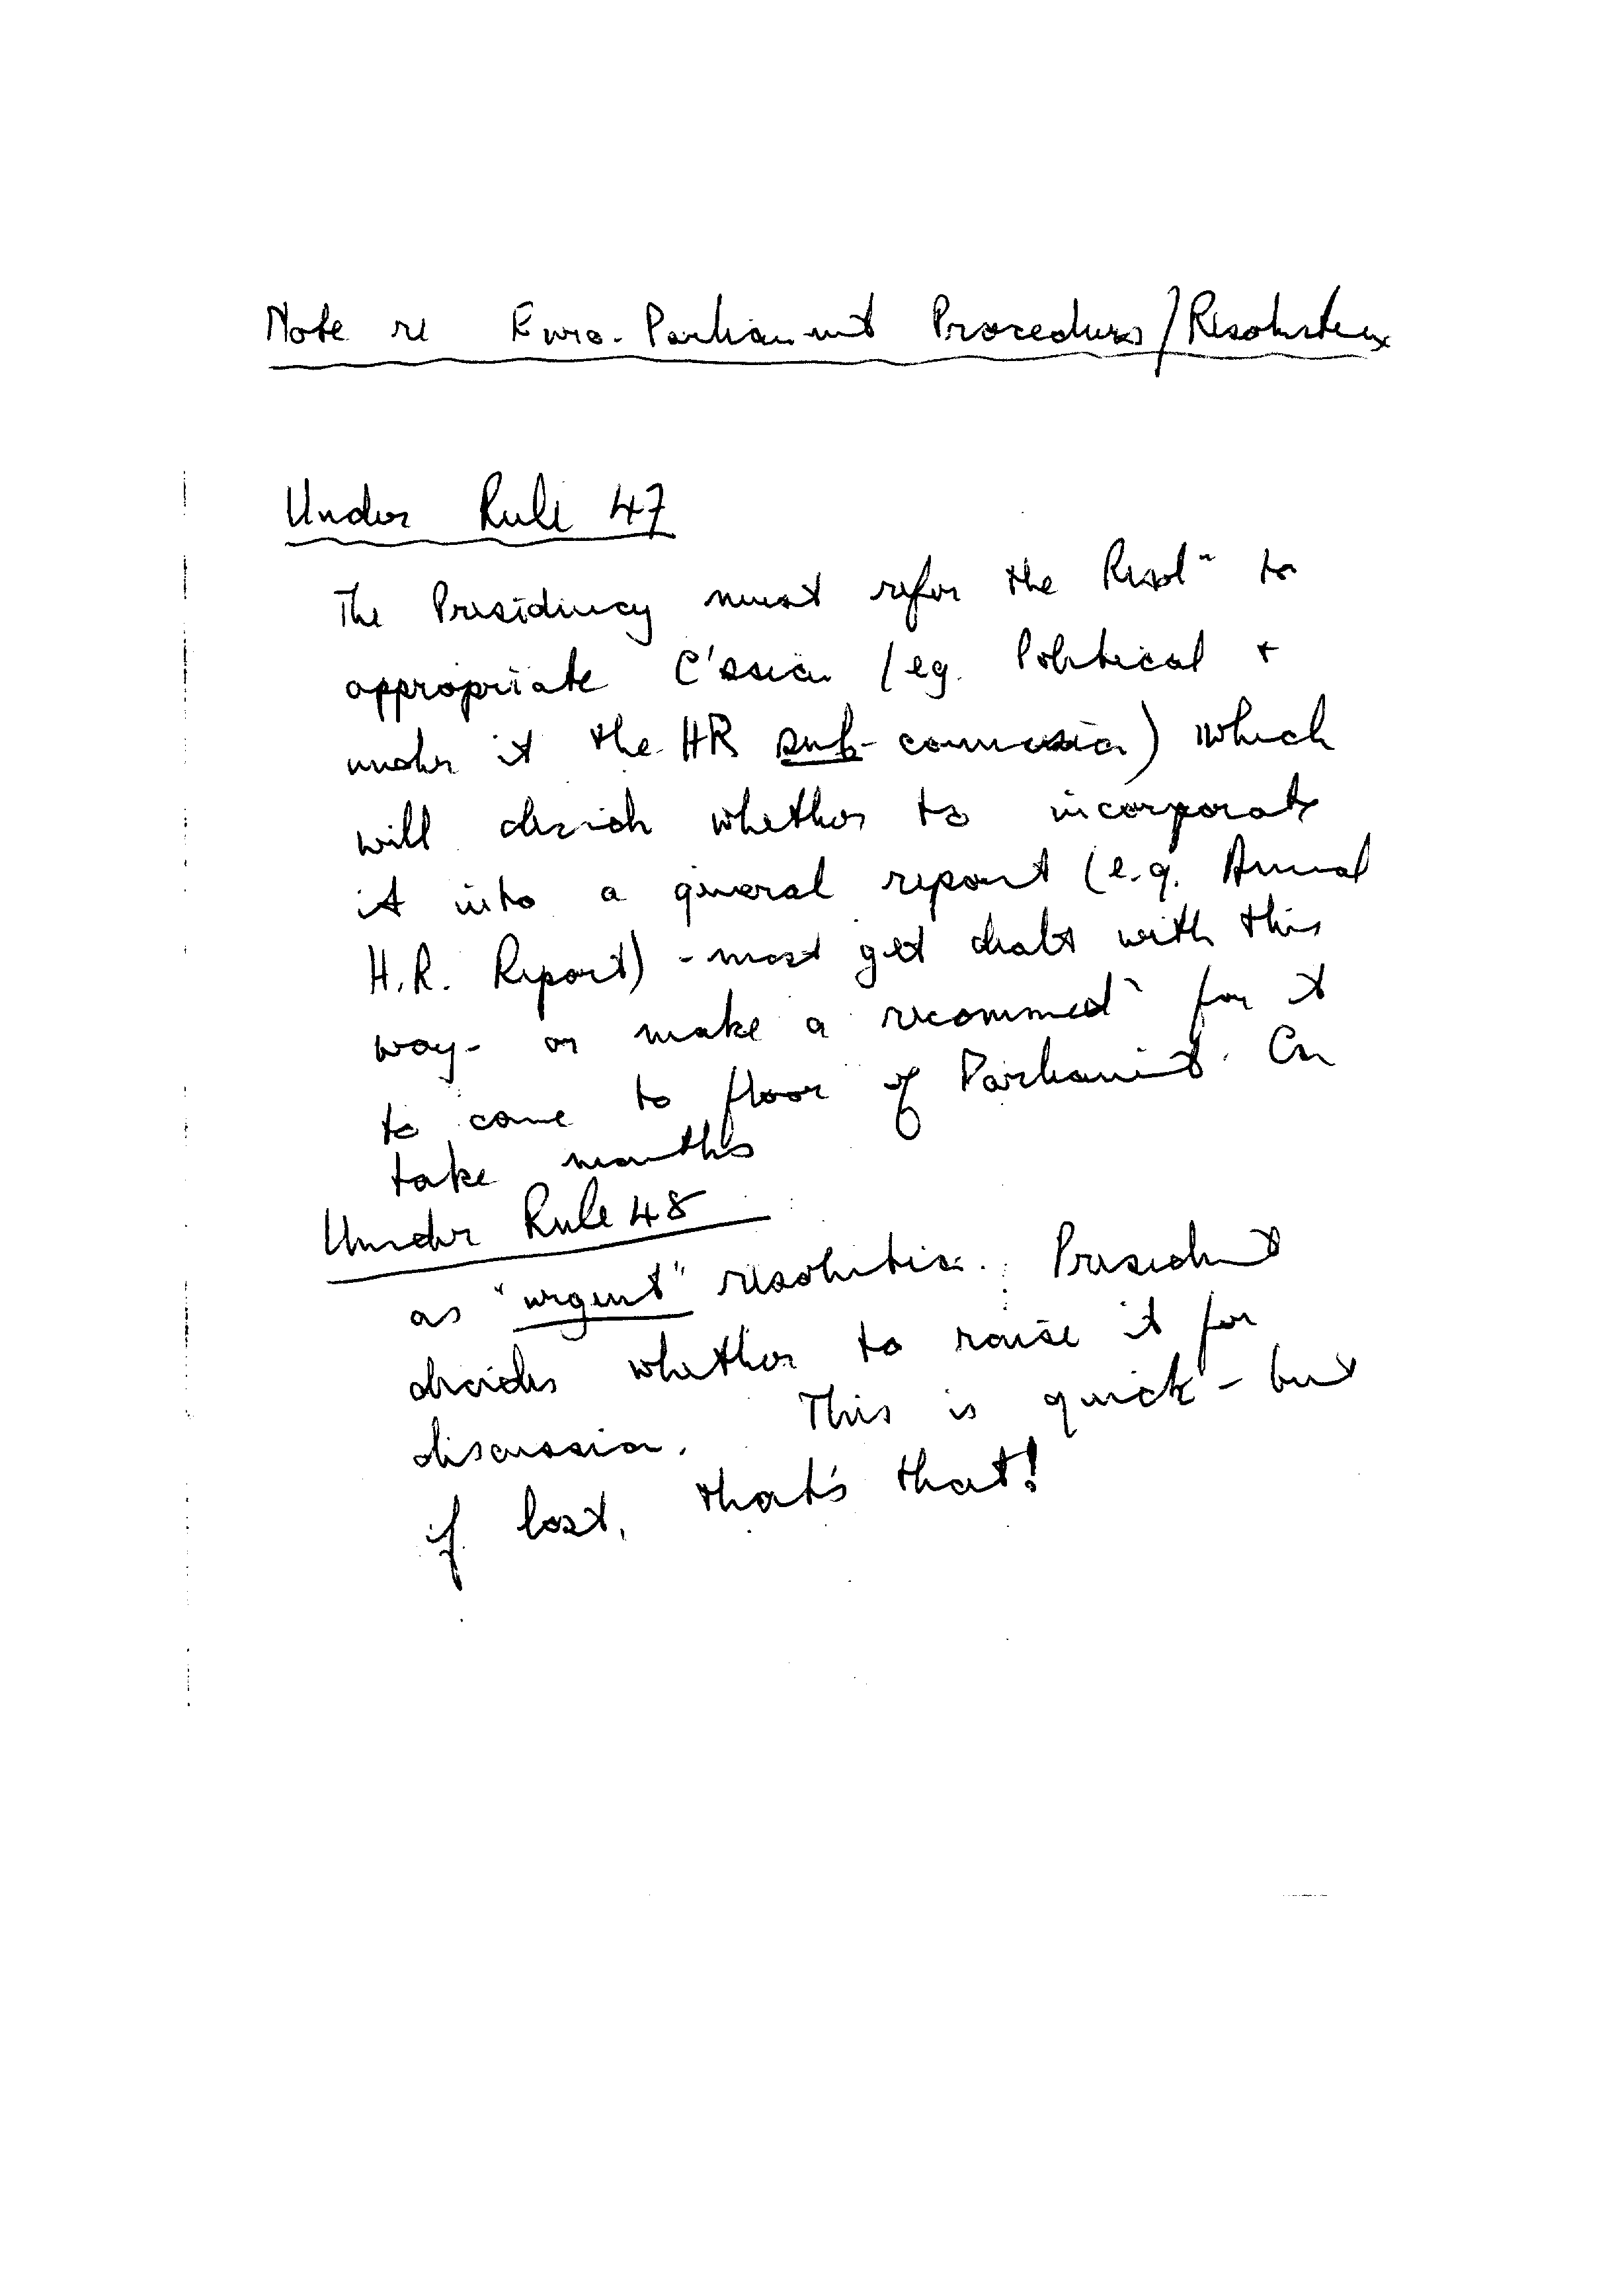 Note re Euro-Parliament Procedures/Resolutions
Under Rule 47
The Presidency must refer the Resolⁿ to
appropriate C'ssion (eg. Political +
under it the HR sub-commission) which
will decide whether to incorporate
it into a general report (e.g. Annual
H.R. Report) - most get dealt with this
way - or make a recommedⁿ for it
to come to floor of Parliament. Can
take months
Under Rule 48
as "urgent" resolution. President
decides whether to raise it for
discussion. This is quick - but
if lost, that's that!